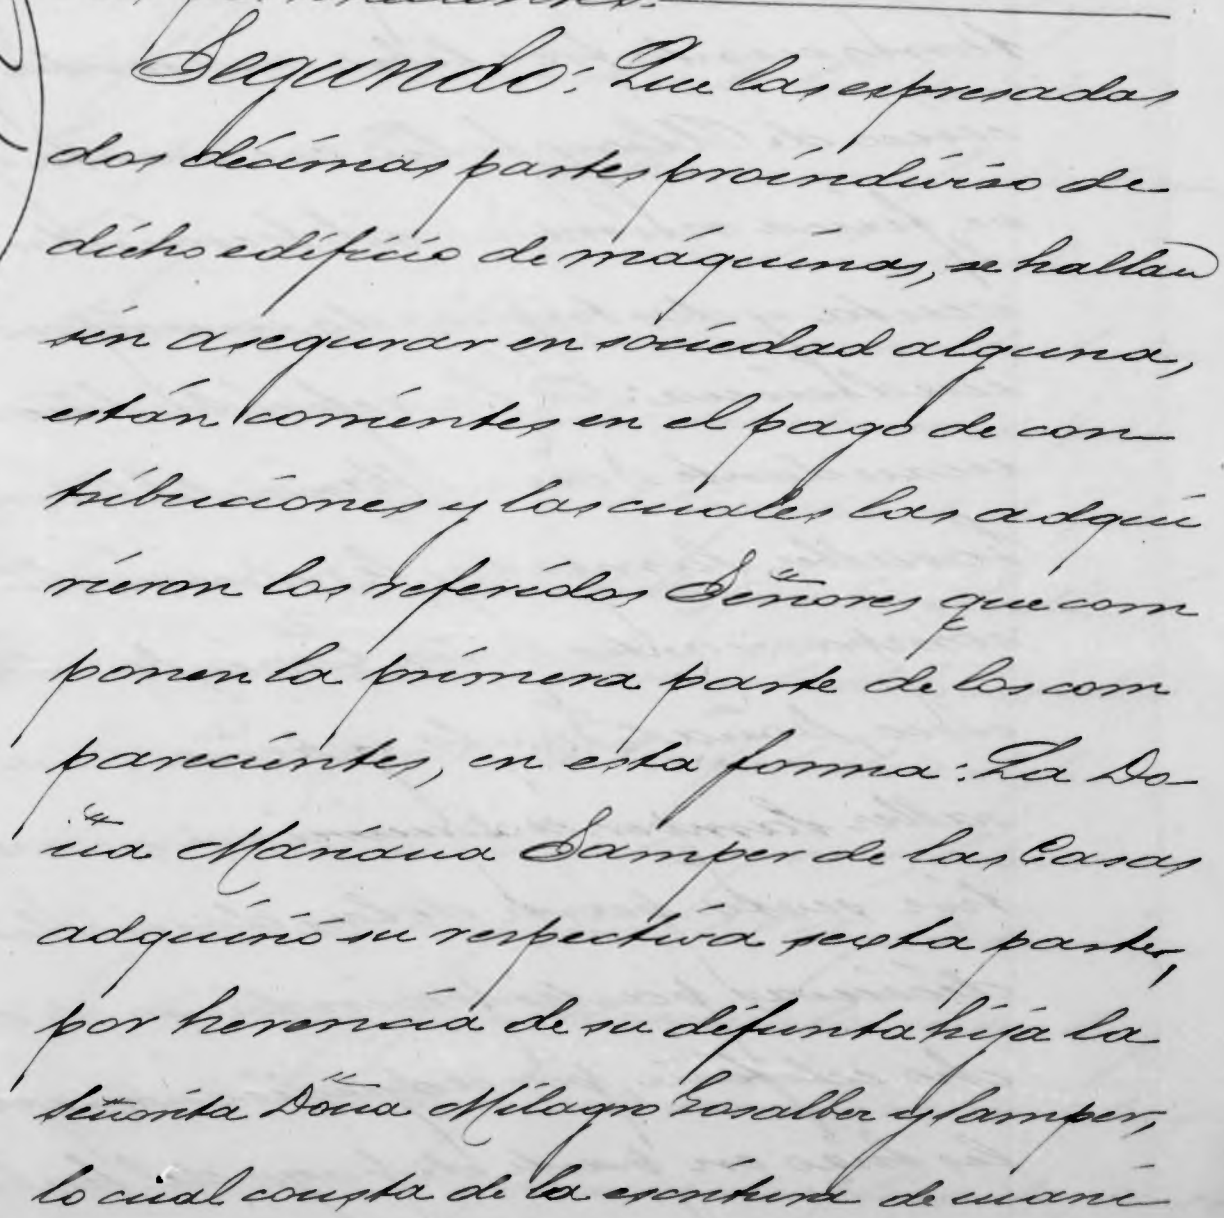 Segundo: Que las espresadas
dos décimas partes proindiviso de
dicho edificio de máquinas, se hallan
sin asegurar en sociedad alguna,
están corrientes en el pago de con
tribuciones y las cuales las adqui
rieron los referidos Señores que com
ponen la primera parte de los com
parecientes, en esta forma: La Do-
ña Mariana Samper de las Casas
adquirió su respectiva sexta parte,
por herencia de su difunta hija la
señorita Doña Milagro Gosalbez y Samper,
lo cual consta de la escritura de mani